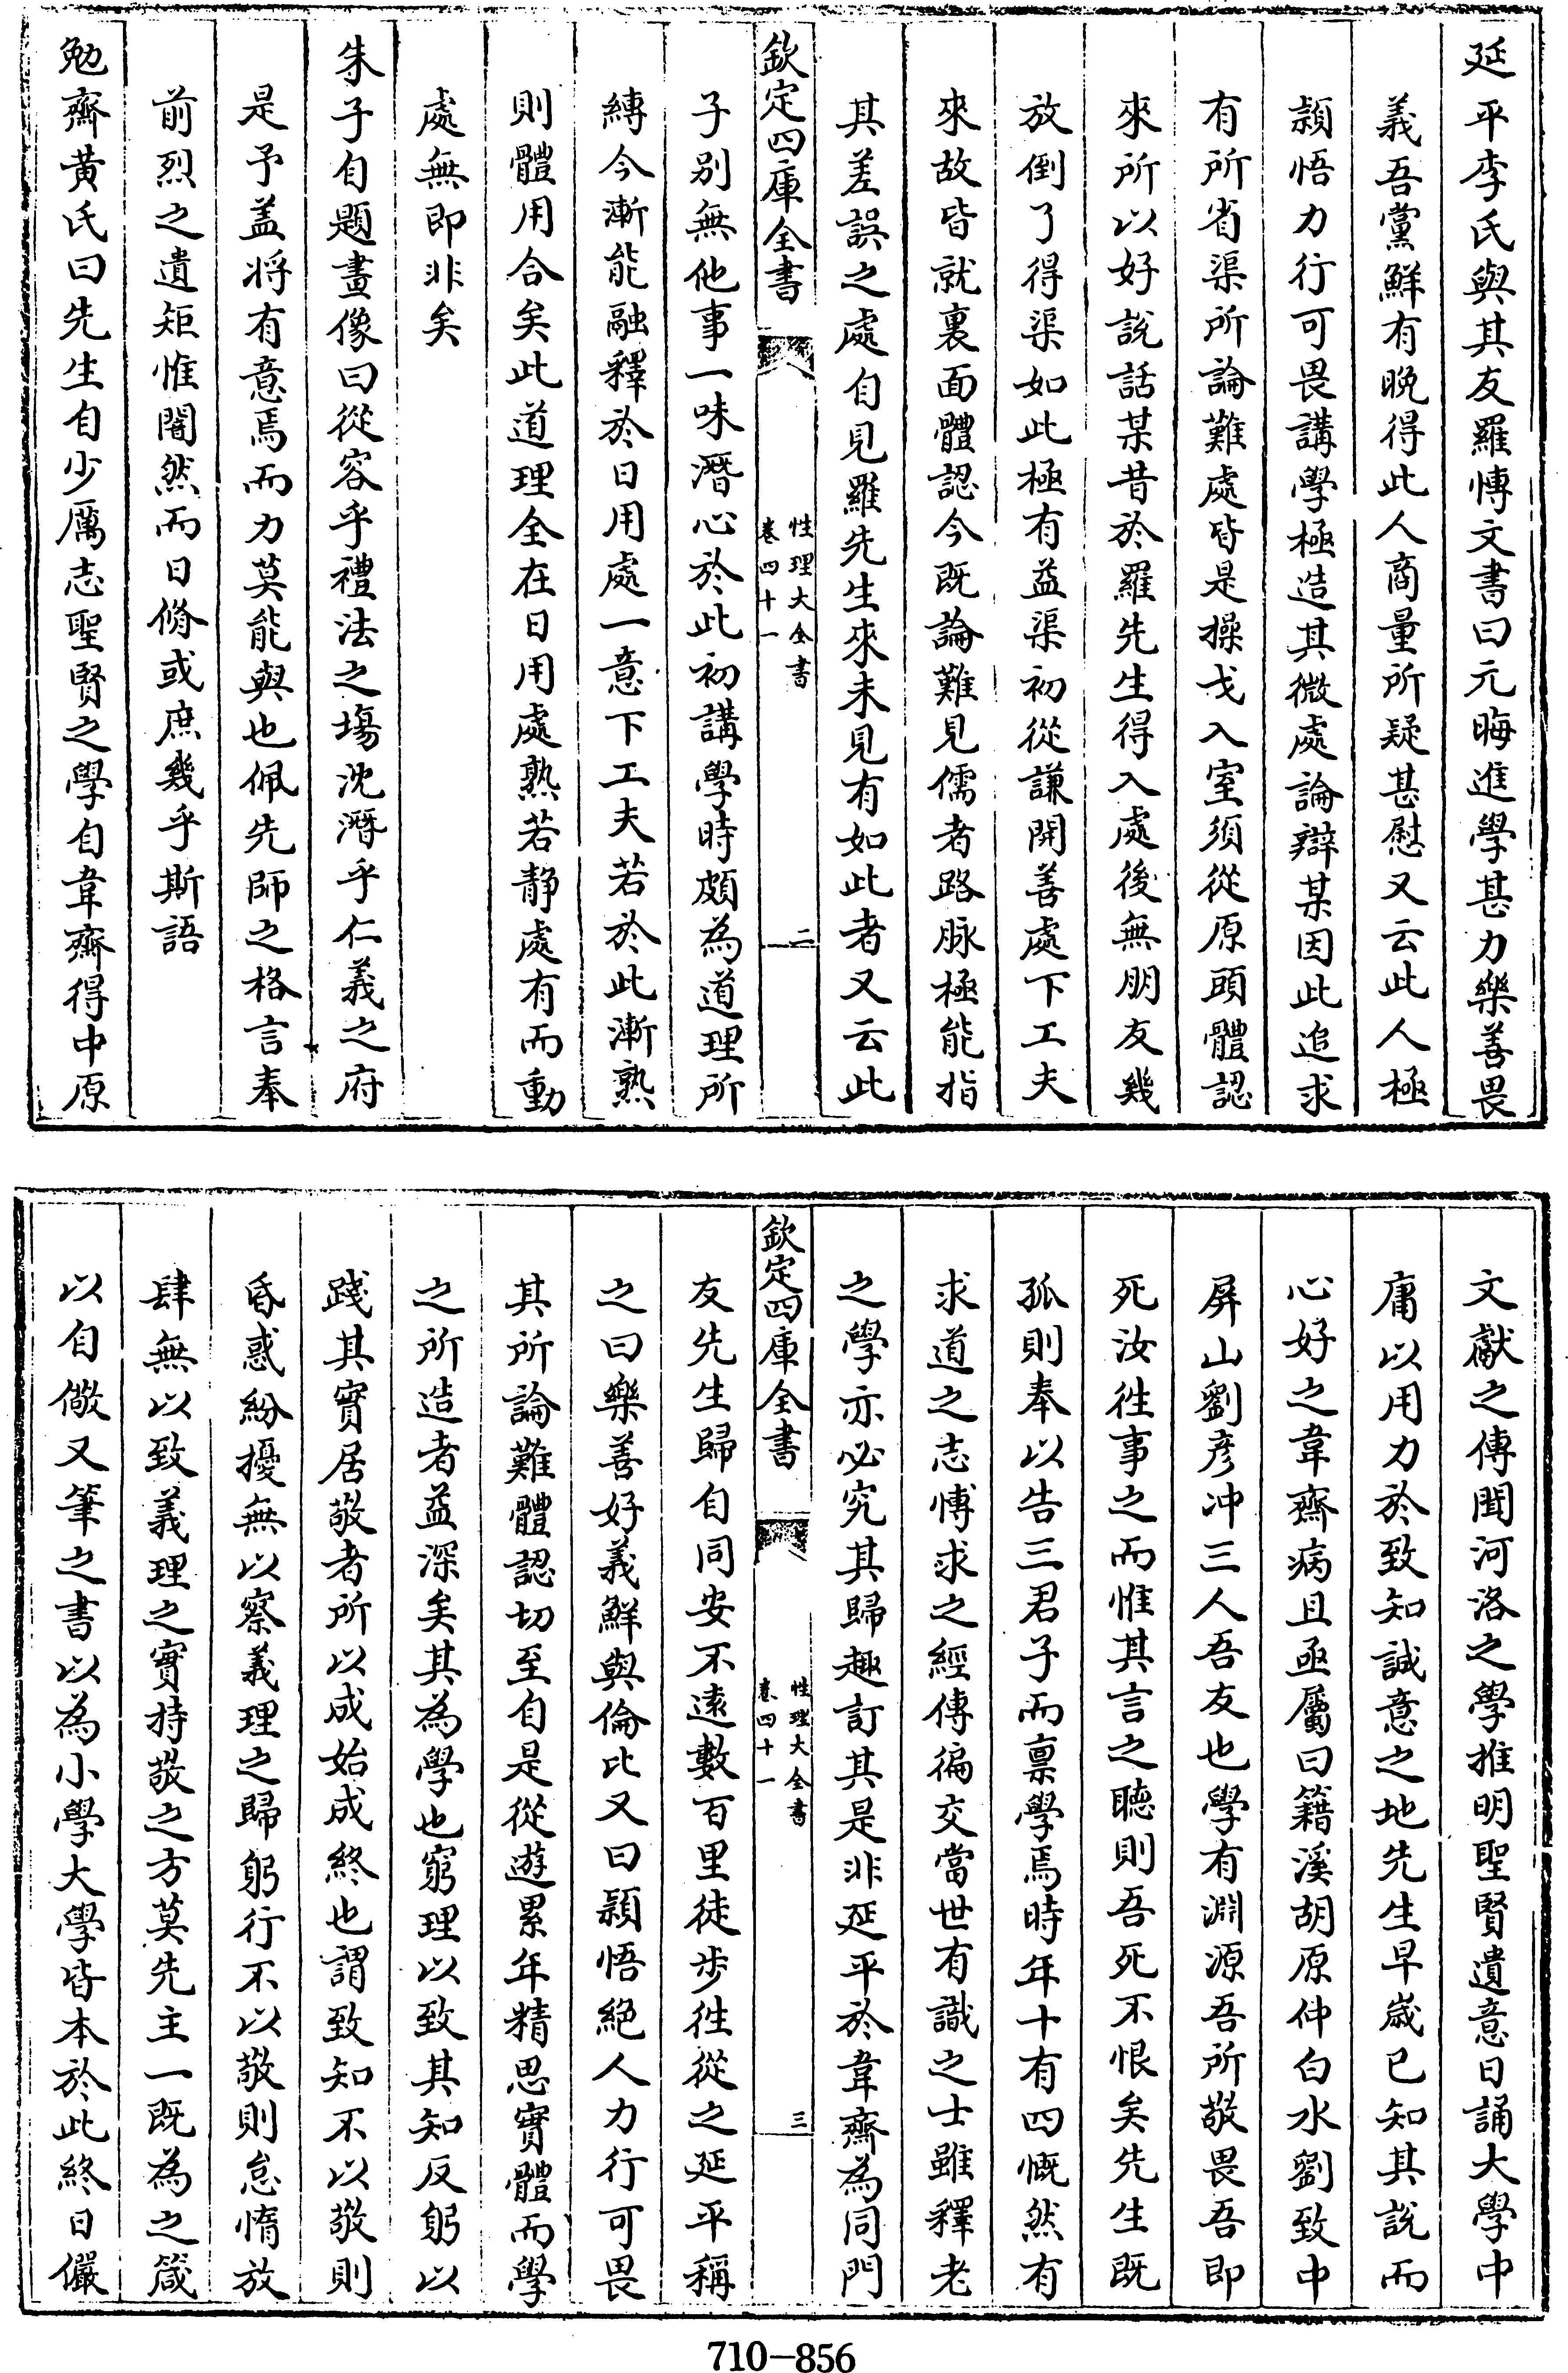 延平李氏與其友羅愽文書曰元晦進學甚力樂善畏
義吾黨鮮有晚得此人商量所疑甚慰又云此人極
穎悟力行可畏講學極造其微處論辯某因此追求
有所省渠所論難處皆是操戈入室須從原頭體認
來所以好說話某昔於羅先生得入處後無朋友幾
放倒了得渠如此極有益渠初從謙開善處下工夫
來故皆就裏面體認今既論難見儒者路脉極能指
其差誤之處自見羅先生來未見有如此者又云此
欽定四庫全書
性理大全書
卷四十一
二
子别無他事一味潛心於此初講學時頗為道理所
縛今漸能融釋於日用處一意下工夫若於此漸熟
則體用合矣此道理全在日用處熟若静處有而動
處無即非矣
朱子自題畫像曰從容乎禮法之塲沈潛乎仁義之府
是予盖將有意焉而力莫能與也佩先師之格言奉
前烈之遺矩惟闇然而日脩或庶幾乎斯語
勉齋黄氏曰先生自少厲志聖賢之學自韋齋得中原
文獻之傳聞河洛之學推明聖賢遺意日誦大學中
庸以用力於致知誠意之地先生早嵗已知其說而
心好之韋齋病且亟屬曰籍溪胡原仲白水劉致中
屏山劉彦冲三人吾友也學有淵源吾所敬畏吾即
死汝徃事之而惟其言之聽則吾死不恨矣先生既
孤則奉以告三君子而禀學焉時年十有四慨然有
求道之志愽求之經傳徧交當世有識之士雖釋老
之學亦必究其歸趣訂其是非延平於韋齋為同門
欽定四庫全書
性理大全書
卷四十一
三
友先生歸自同安不逺數百里徒步徃從之延平稱
之曰樂善好義鮮與倫比又曰穎悟絕人力行可畏
其所論難體認切至自是從遊累年精思實體而學
之所造者益深矣其為學也窮理以致其知反躬以
踐其實居敬者所以成始成終也謂致知不以敬則
昏惑紛擾無以察義理之歸躬行不以敬則怠惰放
肆無以致義理之實持敬之方莫先主一既為之箴
以自儆又筆之書以為小學大學皆本於此終日儼
710-856